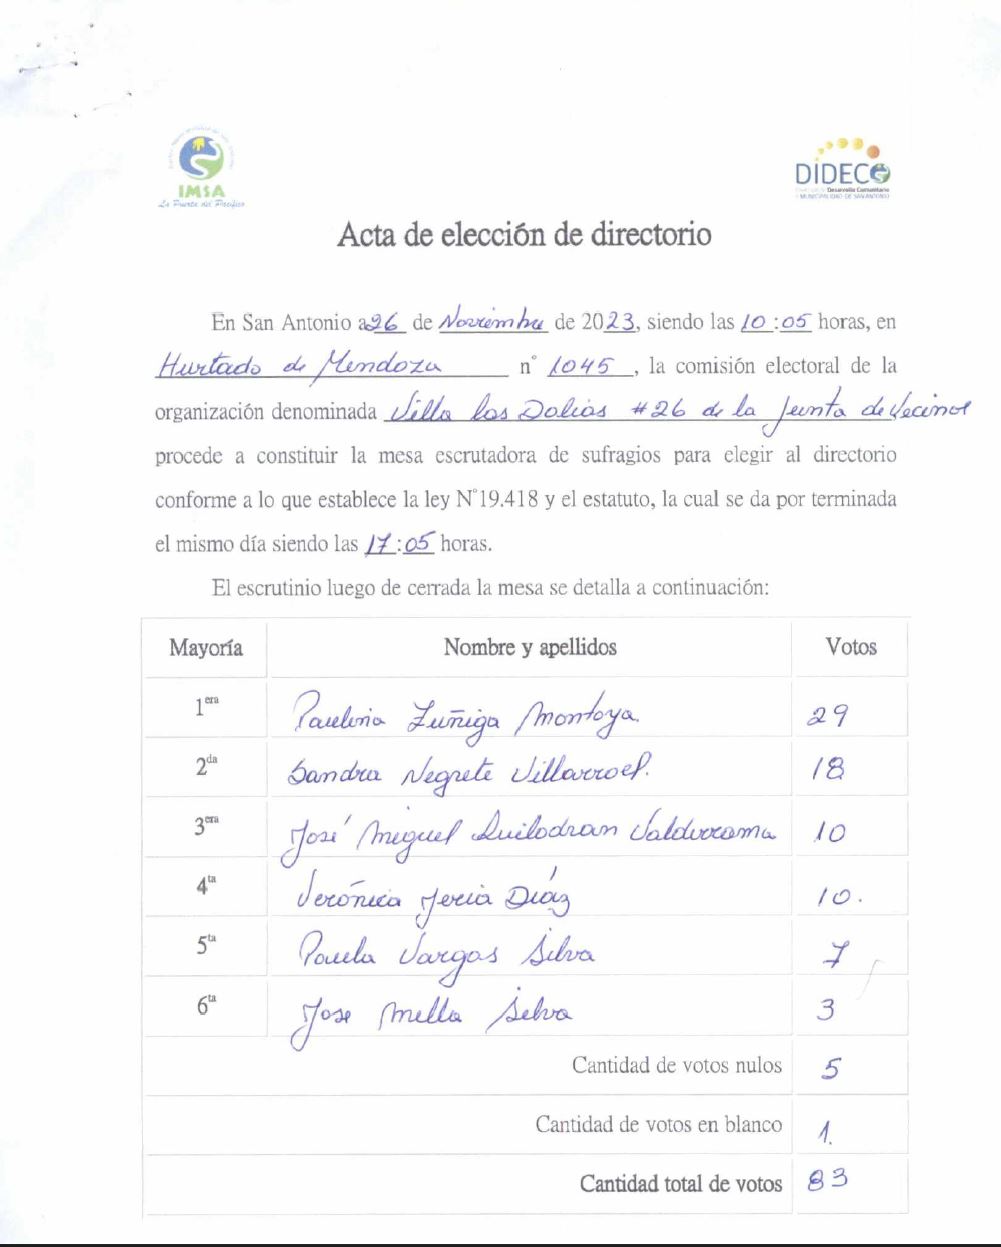 IMSA
La Puerta del Pacífico
DIDECO
Desarrollo Comunitario
MUNICIPALIDAD DE SAN ANTONIO
Acta de elección de directorio
En San Antonio a 26 de Noviembre de 2023, siendo las 10:05 horas, en
Hurtado de Mendoza n° 1045, la comisión electoral de la
organización denominada Villa las Dalias #26 de la Junta de Vecinos
procede a constituir la mesa escrutadora de sufragios para elegir al directorio
conforme a lo que establece la ley N°19.418 y el estatuto, la cual se da por terminada
el mismo día siendo las 17:05 horas.
El escrutinio luego de cerrada la mesa se detalla a continuación:
Mayoría Nombre y apellidos Votos
1era Paulina Zuñiga Montoya. 29
2da Sandra Negrete Villarroel. 18
3era José Miguel Quilodran Valderrama 10
4ta Verónica Jeria Díaz 10.
5ta Paula Vargas Silva 7
6ta Jose Mella Silva 3
Cantidad de votos nulos 5
Cantidad de votos en blanco 1.
Cantidad total de votos 83